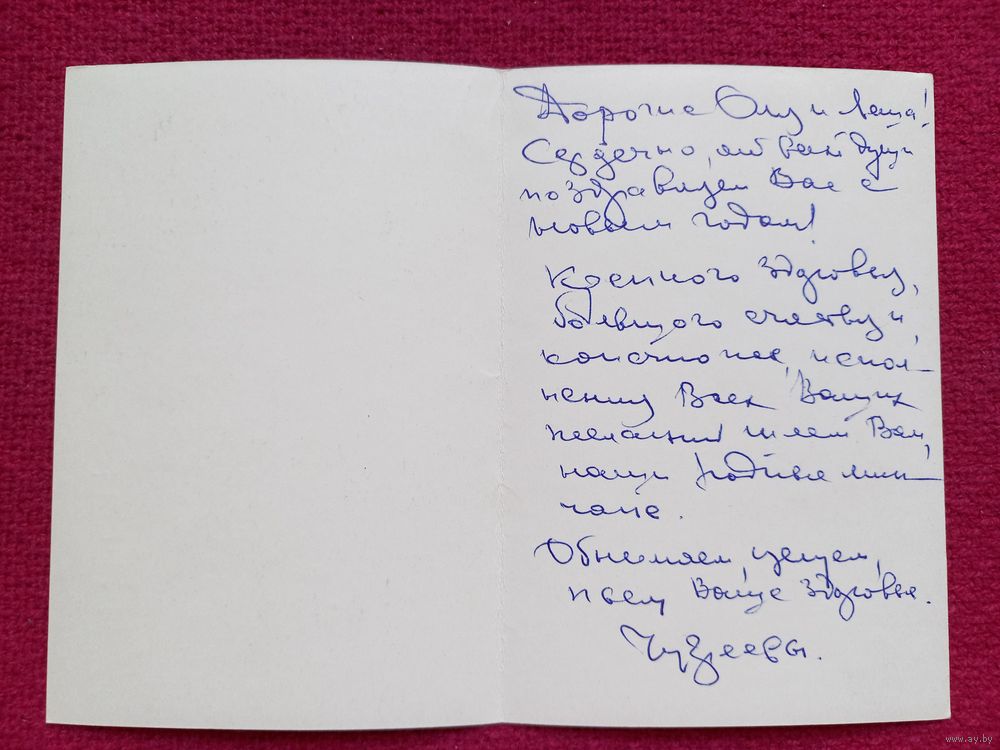 Дорогие Оля и Леша!
Сердечно, от всей души
поздравляем Вас с
новым годом!
Крепкого здоровья,
большого счастья и,
конечно же, испол-
нения Всех Ваших
желаний шлем Вам,
наши родные мин-
чане.
Обнимаем, целуем,
пьем Ваше здоровье.
www.ay.by